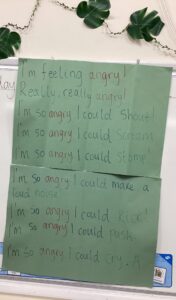 I'm feeling angry!
Really, really angry!
I'm so angry I could Shout!
I'm so angry I could Scream!
I'm so angry I could Stomp!
I'm so angry I could make a
loud noise!
I'm so angry I could Kick!
I'm so angry I could Push
I'm so angry I could Cry